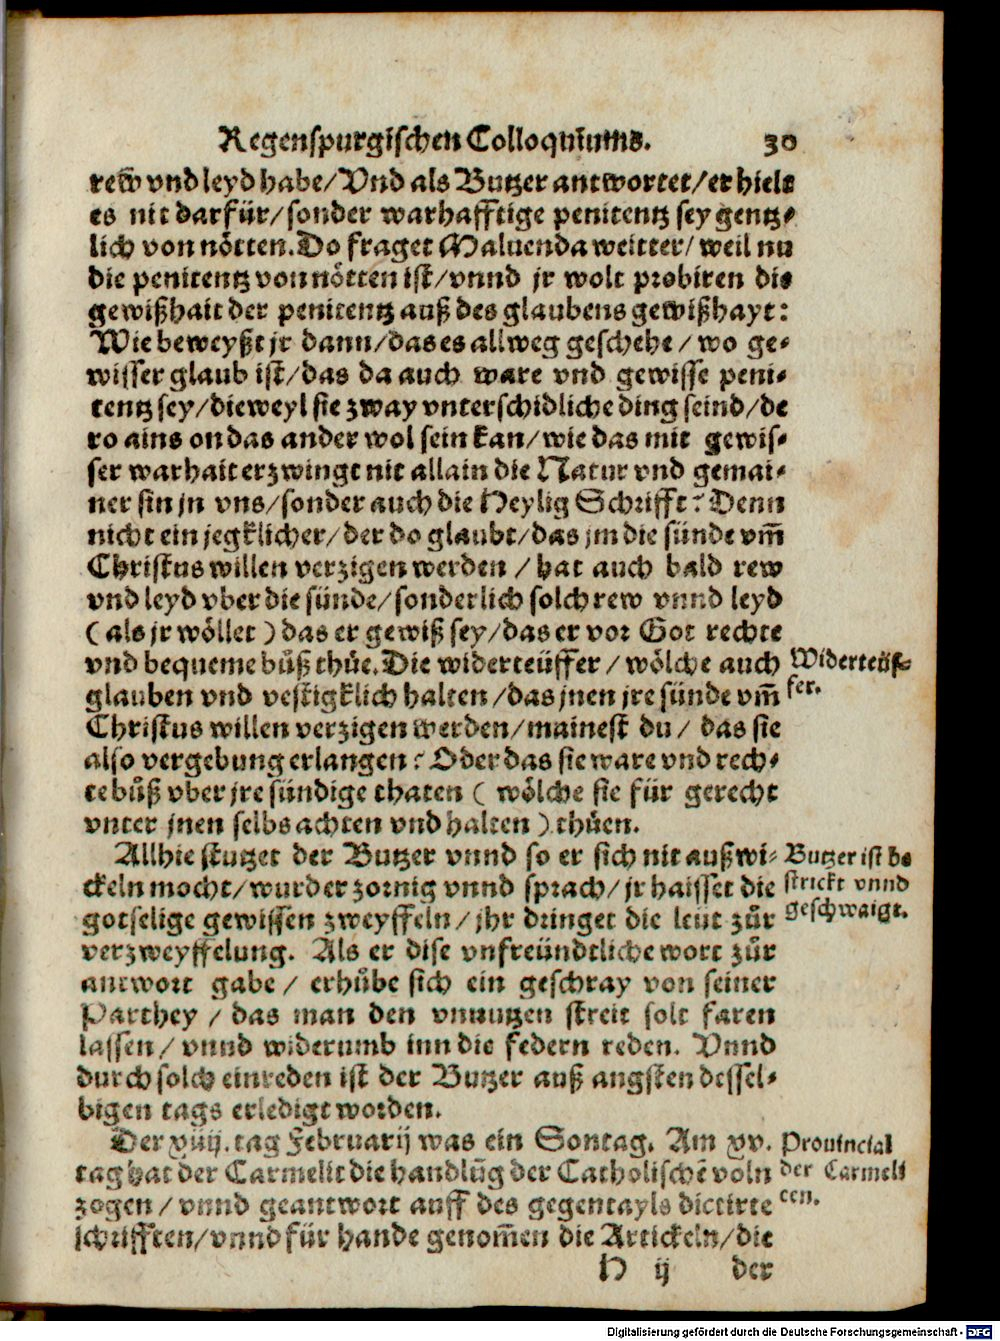 Regenspurgischen Colloquiums. 30
rew vnd leyd habe/ Vnd als Butzer antwortet/ er hielt
es nit darfür/ sonder warhafftige penitentz sey gentz-
lich von nötten. Do fraget Maluenda weitter/ weil nu
die penitentz von nötten ist/ vnnd jr wolt probiren die
gewißhait der penitentz auß des glaubens gewißhayt:
Wie beweyßt jr dann/ das es allweg geschehe/ wo ge-
wisser glaub ist/ das da auch ware vnd gewisse peni-
tentz sey/ dieweyl sie zway vnterschidliche ding seind/ de
ro ains on das ander wol sein kan/ wie das mit gewis-
ser warhait erzwingt nit allain die Natur vnd gemai-
ner sin jn vns/ sonder auch die Heylig Schrifft? Denn
nicht ein jegklicher/ der do glaubt/ das jm die sünde vm̃
Christus willen verzigen werden/ hat auch bald rew
vnd leyd vber die sünde/ sonderlich solch rew vnnd leyd
(als jr wöllet) das er gewiß sey/ das er vor Got rechte
vnd bequeme bůß thůe. Die widerteüffer/ wölche auch
glauben vnd vestigklich halten/ das jnen jre sünde vm̃
Christus willen verzigen werden/ mainest du/ das sie
also vergebung erlangen? Oder das sie ware vnd rech-
te bůß vber jre sündige thaten (wölche sie für gerecht
vnter jnen selbs achten vnd halten) thůen.
Widerteüf-
fer.
Allhie stutzet der Butzer vnnd so er sich nit auß wi-
ckeln mocht/ wurd er zornig vnnd sprach/ jr haisset die
gotselige gewissen zweyffeln/ jhr dringet die leüt zůr
verzweyffelung. Als er dise vnfreündtliche wort zůr
antwort gabe/ erhůbe sich ein geschray von seiner
Parthey/ das man den vnnutzen streit solt faren
lassen/ vnnd widerumb inn die federn reden. Vnnd
durch solch einreden ist der Butzer auß angsten dessel-
bigen tags erledigt worden.
Butzer ist be
strickt vnnd
geschwaigt.
Der xiiij. tag Februarij was ein Sontag. Am xv.
tag hat der Carmelit die handlũg der Catholischẽ voln
zogen/ vnnd geantwort auff des gegentayls dictirte
schrifften/ vnnd für hande genom̃en die Artickeln/ die
Prouincial
der Carmeli
ten.
H ij der
Digitalisierung gefördert durch die Deutsche Forschungsgemeinschaft - DFG